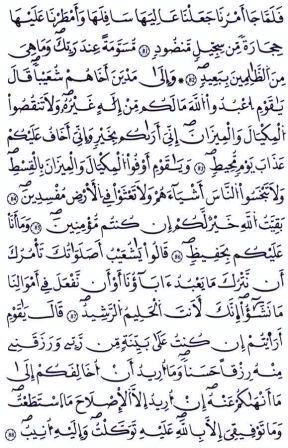 فَلَمَّا جَآءَ امْرُنَا جَعَلْنَا عَٰلِيَهَا سَافِلَهَا وَأَمْطَرْنَا عَلَيْهَا
حِجَارَةً مِّن سِجِّيلٍ مَّنضُودٍ ٨١ مُّسَوَّمَةً عِندَ رَبِّكَ وَمَا هِيَ
مِنَ ٱلظَّٰلِمِينَ بِبَعِيدٍ ٨٢ وَإِلَىٰ مَدْيَنَ أَخَاهُمْ شُعَيْبًا قَالَ
يَٰقَوْمِ ٱعْبُدُوا۟ ٱللَّهَ مَا لَكُم مِّنْ إِلَٰهٍ غَيْرُهُۥ وَلَا تَنقُصُوا۟
ٱلْمِكْيَالَ وَٱلْمِيزَانَ إِنِّيَ أَرَىٰكُم بِخَيْرٍ وَإِنِّيَ أَخَافُ عَلَيْكُمْ
عَذَابَ يَوْمٍ مُّحِيطٍ ٨٣ وَيَٰقَوْمِ أَوْفُوا۟ ٱلْمِكْيَالَ وَٱلْمِيزَانَ بِٱلْقِسْطِ
وَلَا تَبْخَسُوا۟ ٱلنَّاسَ أَشْيَآءَهُمْ وَلَا تَعْثَوْا۟ فِى ٱلْأَرْضِ مُفْسِدِينَ ٨٤
بَقِيَّتُ ٱللَّهِ خَيْرٌ لَّكُمْ إِن كُنتُم مُّؤْمِنِينَ ٨٥ وَمَآ أَنَا۠
عَلَيْكُم بِحَفِيظٍ ٨٦ قَالُوا۟ يَٰشُعَيْبُ أَصَلَوَٰتُكَ تَامُرُكَ
أَن نَّتْرُكَ مَا يَعْبُدُ ءَابَآؤُنَآ أَوْ أَن نَّفْعَلَ فِىٓ أَمْوَٰلِنَا
مَا نَشَٰٓؤُا۟ إِنَّكَ لَأَنتَ ٱلْحَلِيمُ ٱلرَّشِيدُ ٨٧ قَالَ يَٰقَوْمِ
أَرَٰٓيْتُمُۥٓ إِن كُنتُ عَلَىٰ بَيِّنَةٍ مِّن رَّبِّى وَرَزَقَنِى
مِنْهُ رِزْقًا حَسَنًا وَمَآ أُرِيدُ أَنْ أُخَالِفَكُمُۥٓ إِلَىٰ
مَآ أَنْهَىٰكُمْ عَنْهُ إِنْ أُرِيدُ إِلَّا ٱلْإِصْلَٰحَ مَا ٱسْتَطَعْتُ
وَمَا تَوْفِيقِىَ إِلَّا بِٱللَّهِ عَلَيْهِ تَوَكَّلْتُ وَإِلَيْهِ أُنِيبُ ٨٨